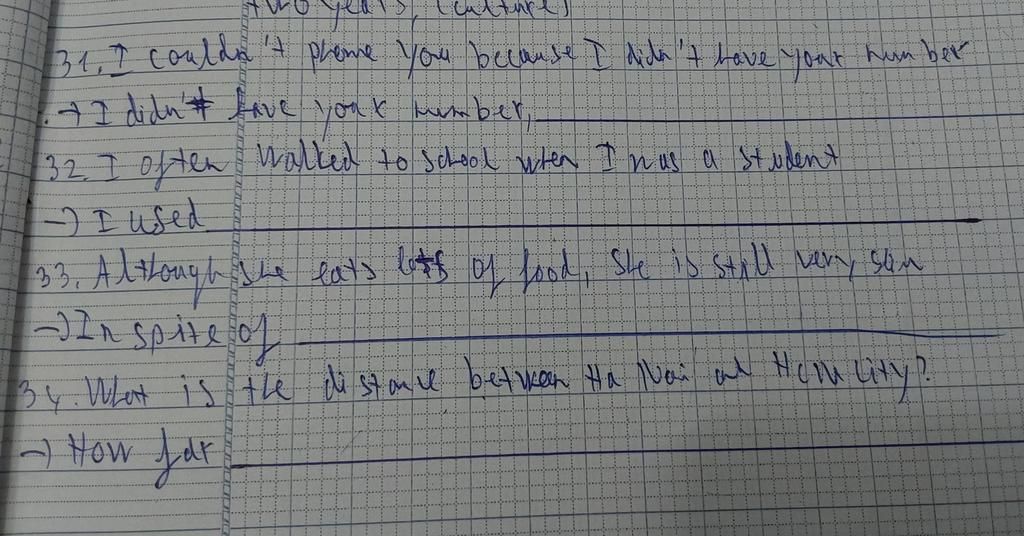 two years, (culture)
31. I couldn't phone you because I didn't have your number
→ I didn't have your number,
32. I often walked to school when I was a student
→ I used
33. Although she eats lots of food, she is still very slim
→ In spite of
34. What is the distance between Ha Noi and HCM City?
→ How far